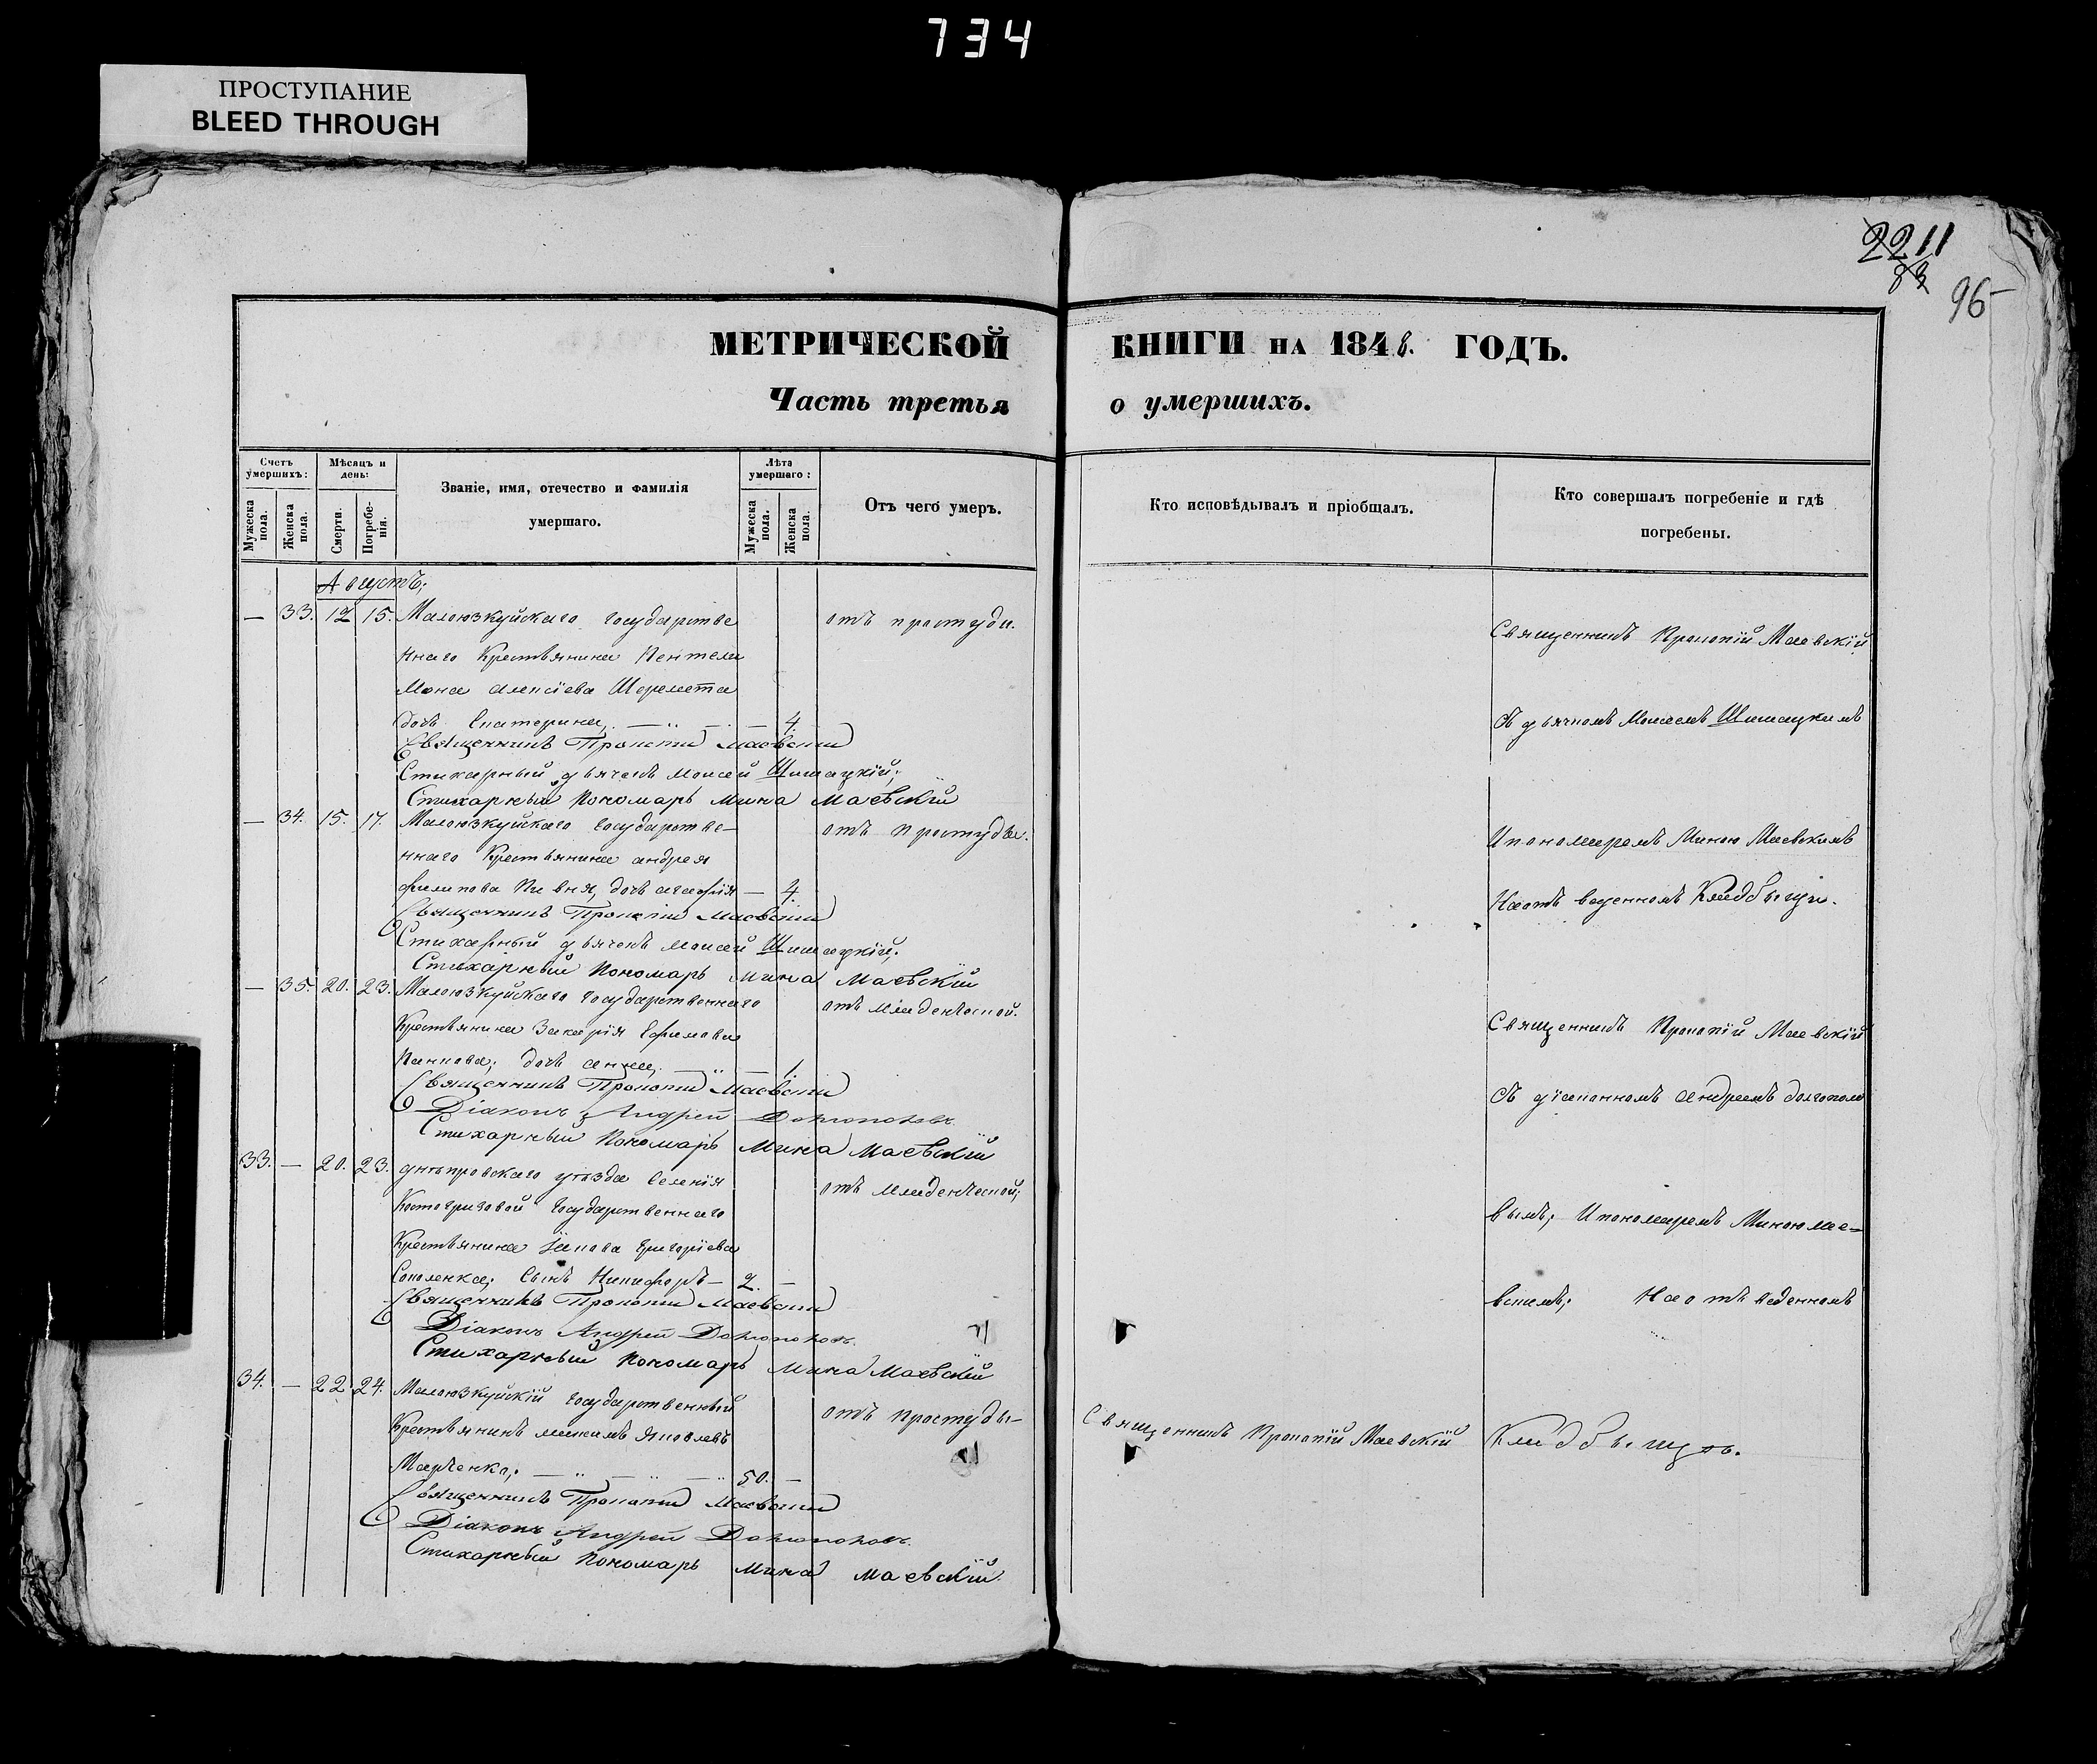 734
ПРОСТУПАНИЕ
BLEED THROUGH
2211
83
96
МЕТРИЧЕСКОЙ КНИГИ НА 1848. ГОДЪ.
Часть третья о умершихъ.
Счетъ умершихъ:
Мужеска пола.
Женска пола.
Мѣсяцъ и день:
Смерти.
Погребенія.
Званіе, имя, отечество и фамилія
умершаго.
Лѣта умершаго:
Мужеска пола.
Женска пола.
Отъ чего умеръ.
Кто исповѣдывалъ и пріобщалъ.
Кто совершалъ погребеніе и гдѣ
погребены.
Августъ;
— 33. 12 15. Малоюзкуйскаго государстве отъ простуди.
ннаго Крестьянина Пентели
Мона Алексіева Шеремета
дочь Екатерина, — 4.
Священникъ Прокопій Маевскій
Стихарный дьячекъ Моисей Шишацкій;
Стихарный Пономарь Мина Маевскій
— 34. 15. 17. Малоюзкуйскаго государстве- отъ простуды.
ннаго Крестьянина Андрея
Филипова Пивня, дочь Агафія — 4.
Священникъ Прокопій Маевскій
Стихарный дьячекъ Моисей Шишацкій;
Стихарный Пономарь Мина Маевскій
— 35. 20. 23. Малоюзкуйскаго государственнаго отъ младенческой.
Крестьянина Захарія Ефимова
дочь Анна, — 1.
Священникъ Прокопій Маевскій
Діаконъ Андрей Долгополовъ
Стихарный Пономарь Мина Маевскій
33. — 20. 23. Днѣпровскаго уѣзда Селенія отъ младенческой;
Костогризовой государственнаго
Крестьянина Іакова Григоріева
Соколенка; Сынъ Никифоръ — 2. —
Священникъ Прокопій Маевскій
Діаконъ Андрей Долгополовъ.
Стихарный Пономарь Мина Маевскій
34. — 22. 24. Малоюзкуйскій государственный отъ простуды-
Крестьянинъ Яковлевъ
Марченко; — 50. —
Священникъ Прокопій Маевскій
Діаконъ Андрей Долгополовъ.
Стихарный Пономарь Мина Маевскій.
Священникъ Прокопій Маевскій
Священникъ Прокопій Маевскій
Съ дьячкомъ Моисеемъ Шишацкимъ
И пономаремъ Миною Маевскимъ
На отъ веденномъ Кладбищи.
Священникъ Прокопій Маевскій
Съ діакономъ Андреемъ Долгополо
вымъ; И пономаремъ Миною Мае-
вскимъ; На отъ веденномъ
Кладбищѣ.